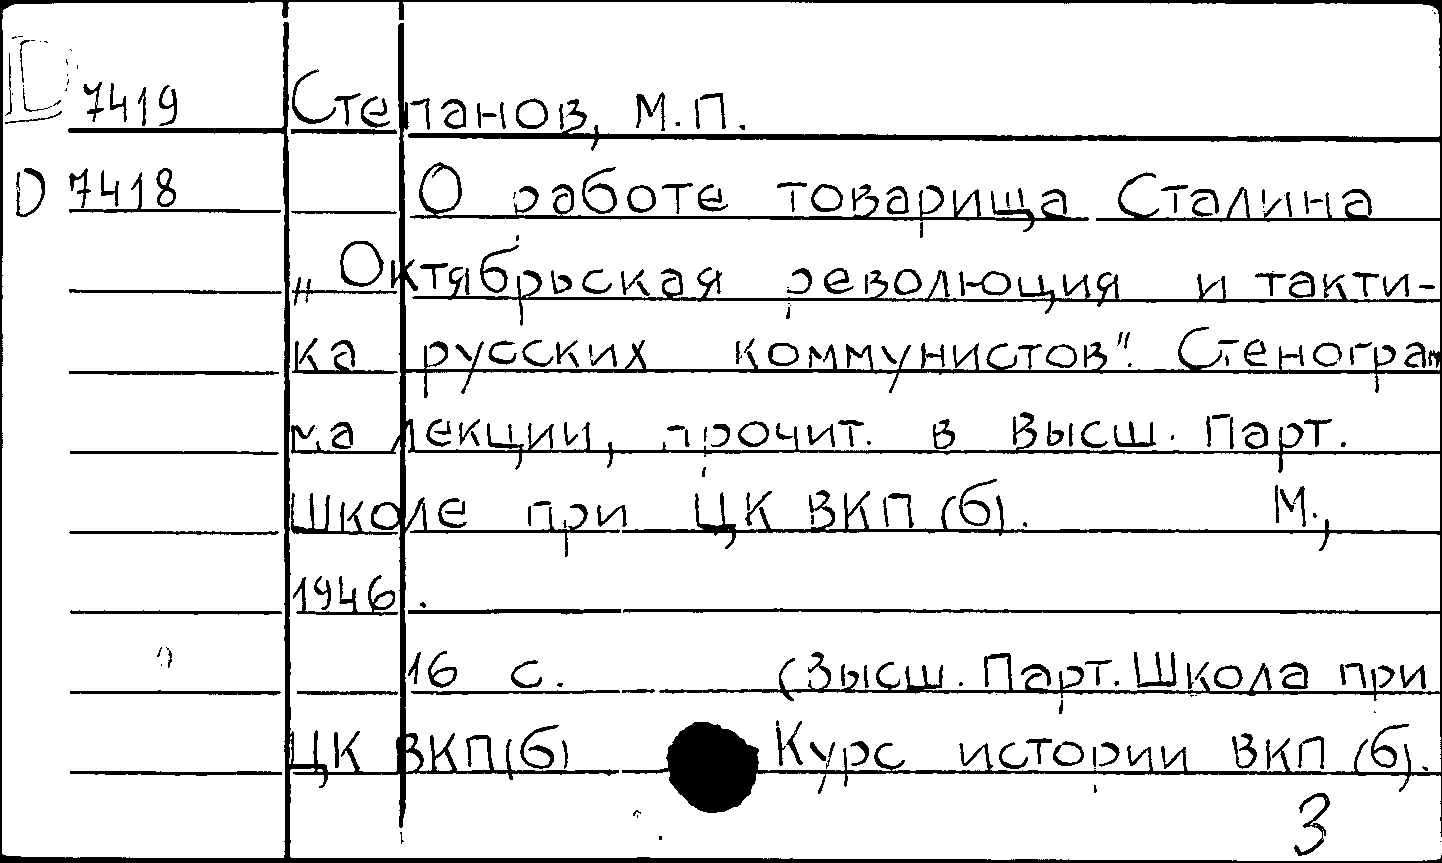 D 7419 Степанов, М.П.
D 7418 О работе товарища Сталина
„Октябрьская революция и такти-
ка русских коммунистов". Стенограм
ма лекции, прочит. в Высш. Парт.
Школе при ЦК ВКП(б). М.,
1946.
16 с. (Высш. Парт. Школа при
ЦК ВКП(б) Курс истории ВКП(б).
3